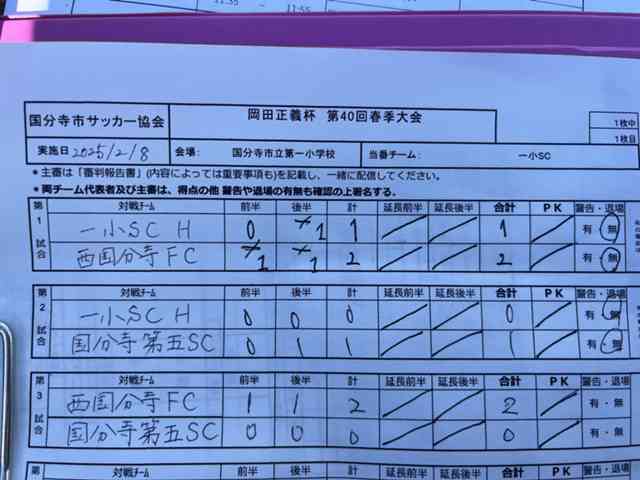 11:55
国分寺市サッカー協会 岡田正義杯 第40回春季大会 1枚中
1枚目
実施日 2025/2/8 会場: 国分寺市立第一小学校 当番チーム: 一小SC
*主審は「審判報告書」(内容によっては重要事項も)を記載し、一緒に配信してください。
*両チーム代表者及び主審は、得点の他 警告や退場の有無も確認の上署名する。
第1試合 対戦チーム 前半 後半 計 延長前半 延長後半 合計 PK 警告・退場
一小SC H 0 1 1 1 有 無
西国分寺FC 1 1 2 2 有 無
第2試合 対戦チーム 前半 後半 計 延長前半 延長後半 合計 PK 警告・退場
一小SC H 0 0 0 0 有・無
国分寺第五SC 0 1 1 1 有・無
第3試合 対戦チーム 前半 後半 計 延長前半 延長後半 合計 PK 警告・退場
西国分寺FC 1 1 2 2 有・無
国分寺第五SC 0 0 0 0 有・無
第 対戦チーム 前半 後半 計 延長前半 延長後半 合計 PK 警告・退場